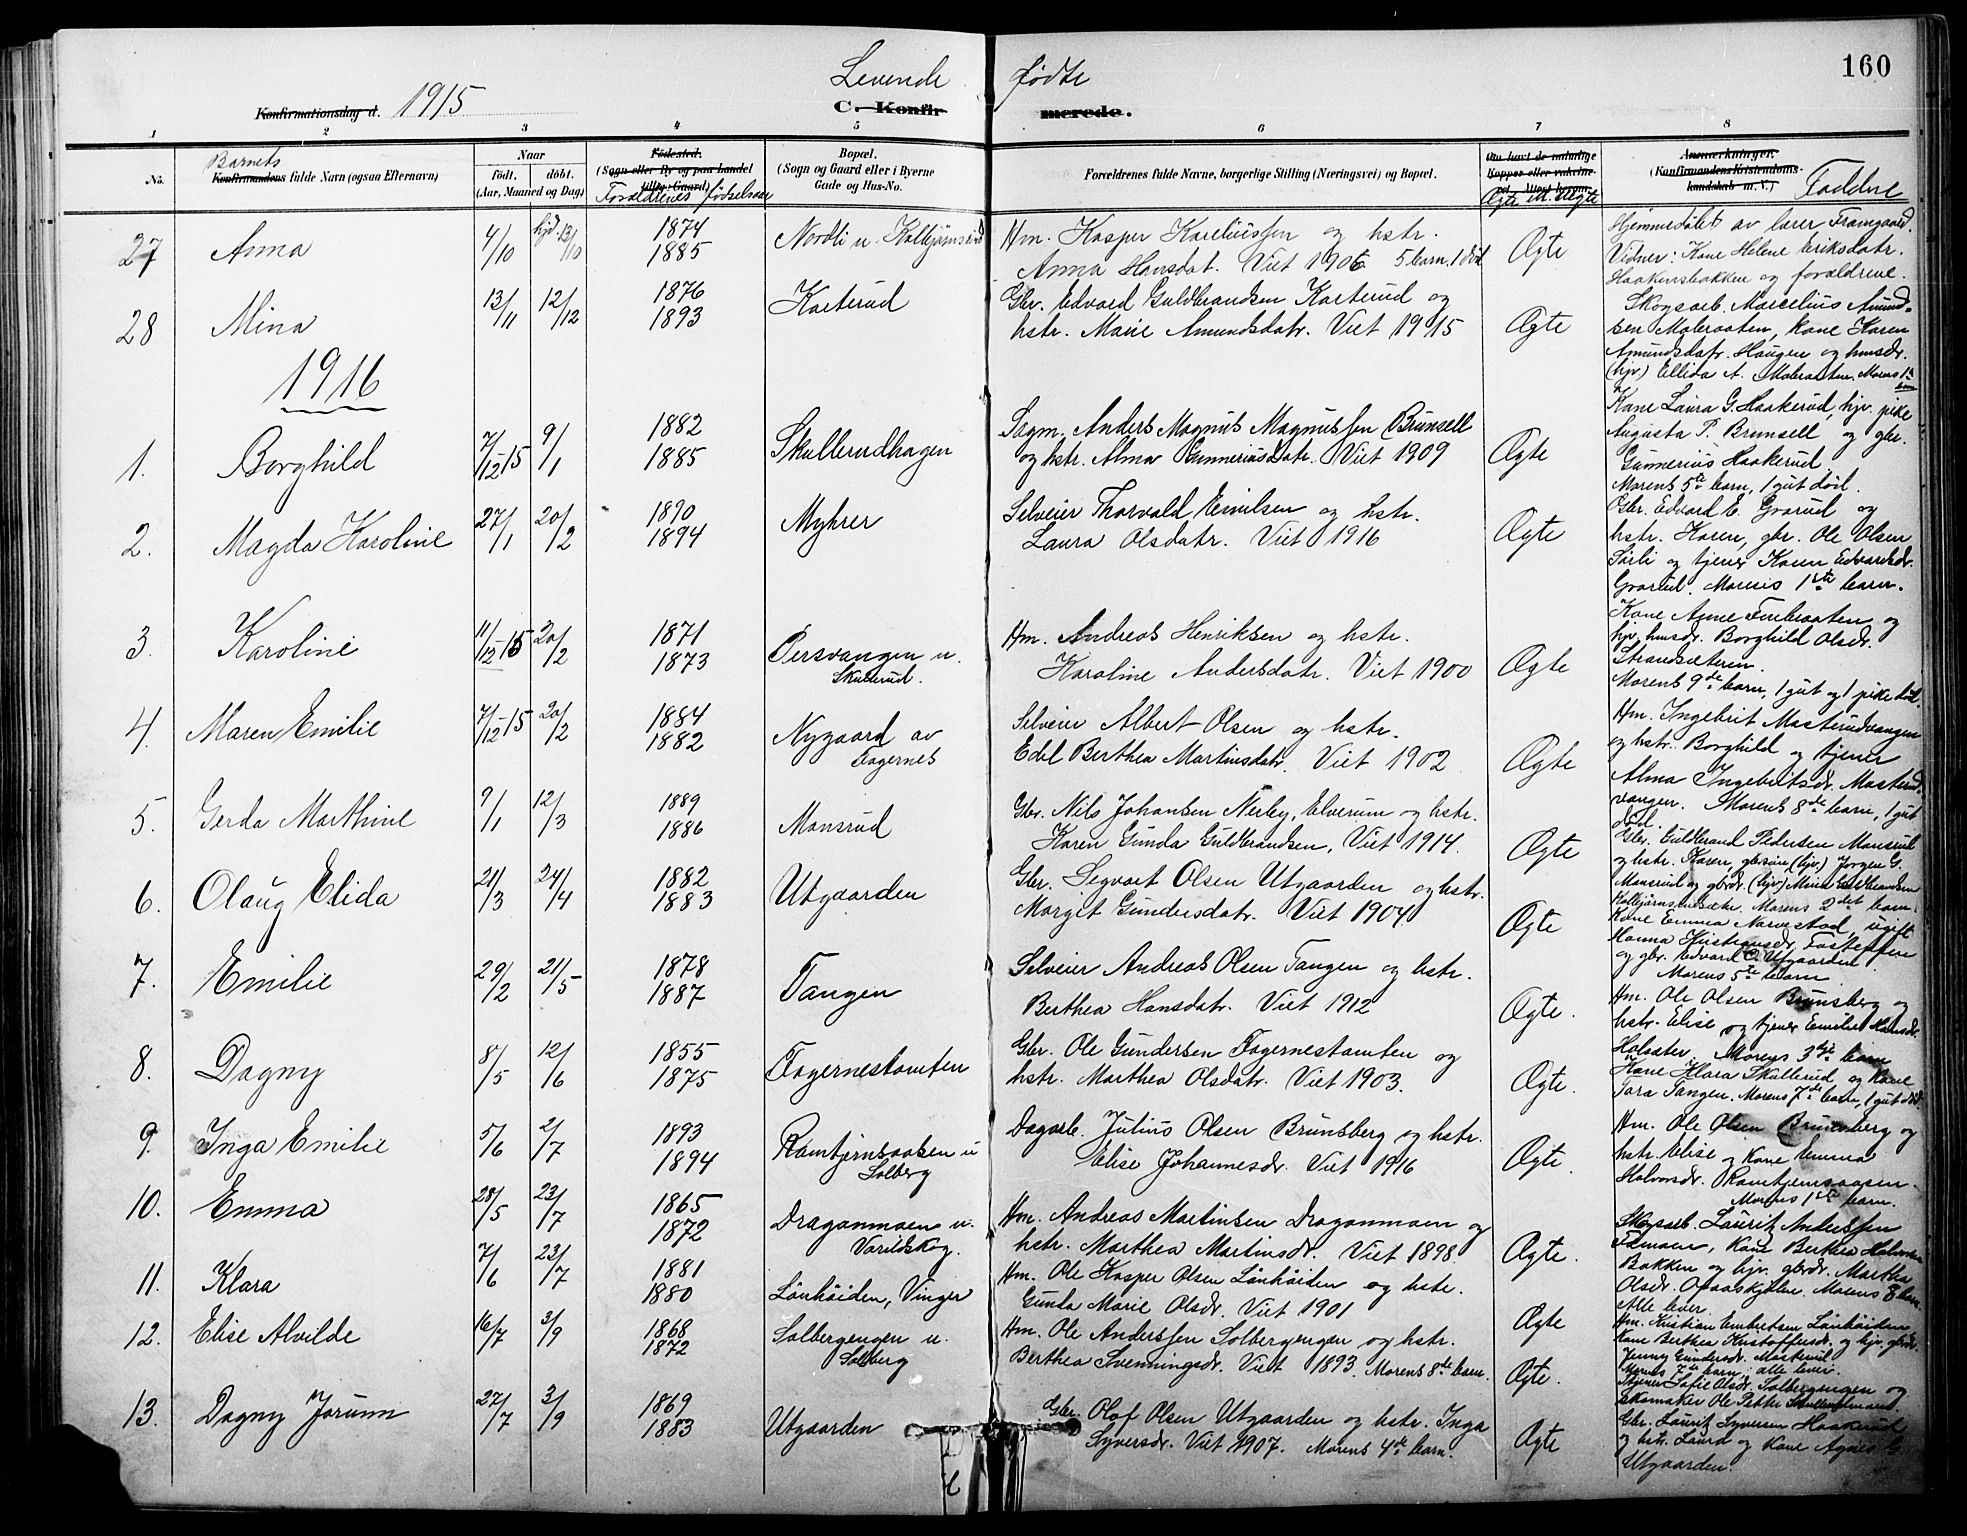 160
Levende fødte
Konfirmationsdag d. 1915
C. Konfirmerede.
1 2 3 4 5 6 7 8
No.
Barnets
Konfirmandens fulde Navn (ogsaa Efternavn)
Naar
født. døbt.
(Aar, Maaned og Dag)
Fødested.
(Sogn eller By og paa Landet
tillige Gaard)
Forældrenes fødselsaar
Bopæl.
(Sogn og Gaard eller i Byerne
Gade og Hus-No.
Forældrenes fulde Navne, borgerlige Stilling (Næringsvei) og Bopæl.
Om havt de naturlige
Kopper eller vaksine-
ret
Ægte el. Uegte
Anmærkninger.
(Konfirmandens Kristendoms-
kundskab m. V.)
Faddere
27 Anna 4/10 hjd. 13/10 1874 1885 Nordli u. Kalbjørnsrud
Hm. Kasper Kareliussen og hstr.
Anna Hansdat. Viet 1906 5 barn. 1 død
Ægte
Hjemmedøbt av lærer Framgaard.
Vidner: Kone Helene Eriksdatr.
Haakensbakken og forældrene.
28 Mina 13/11 12/12 1876 1893 Karterud
Gbr. Edvard Guldbrandsen Karterud og
hstr. Marie Amundsdatr. Viet 1915
Ægte
Skogsarb. Marcelius Amund-
sen Maleraaten, kone Karen
Amundsdatr. Haugen og husdr.
(hjv) Ellida A. Maleraaten. Morens 1ste
barn
1916
1. Borghild 7/12-15 9/1 1882 1885 Skullerudhagen
Sagm. Anders Magnus Magnussen Brunsell
og hstr. Alma Gunneriusdatr. Viet 1909
Ægte
Kone Laura G. Haakerud, hjv. pike
Augusta P. Brunsell og gbr.
Gunnerius Haakerud.
Morens 5te barn, 1 gut død.
2. Magda Karoline 27/1 20/2 1890 1894 Myhrer
Selveier Thorvald Emilsen og hstr.
Laura Olsdatr. Viet 1916
Ægte
Gbr. Edvard E. Grorud og
hstr. Karen, gbr. Ole Olsen
Sørli og tjener Karen Edvardsdr.
Grorud. Morens 1ste barn.
3. Karoline 11/12-15 20/2 1871 1873 Persvangen u.
Skullerud.
Hm. Andreas Henriksen og hstr.
Karoline Andersdatr. Viet 1900
Ægte
Kone Agne Finbraaten og
hjv. husdr. Borghild Olsdr.
Strandsæteren.
Morens 9de barn, 1 gut og 1 pike død.
4. Maren Emilie 7/12-15 20/2 1884 1882 Nygaard av
Fagernes
Selveier Albert Olsen og hstr.
Edel Berthea Martinsdatr. Viet 1902
Ægte
Hm. Ingebrit Masterudvangen
og hstr. Borghild og tjener
Alma Ingebritsdr. Masterud-
vangen. Morens 8de barn, 1 gut
død.
5. Gerda Marthine 9/1 12/3 1889 1886 Monsrud
Gbr. Nils Johansen Nerby, Elverum og hstr.
Karen Gunda Guldbrandsen, Viet 1914.
Ægte
Gbr. Guldbrand Pedersen Monsrud
og hstr. Karen, gbrsøn (hjv.) Jørgen G.
Monsrud og gbrdr. (hjv.) Mina Guldbrandsen
Morens 2det barn.
6. Olaug Elida 21/3 24/4 1882 1883 Utgaarden
Gbr. Segvart Olsen Utgaarden og hstr.
Margit Gundersdatr. Viet 1904
Ægte
Kone Emma Narvestad, ugift
Hanna Kristiansdr.
og gbr. Edvard O. Utgaarden.
Morens 5te barn
7. Emilie 29/2 21/5 1878 1887 Tangen
Selveier Andreas Olsen Tangen og hstr.
Berthea Hansdatr. Viet 1912
Ægte.
Hm. Ole Olsen Brunsberg og
hstr. Elise og tjener Emilie Hansdr.
Holsæter. Morens 3dje barn
8. Dagny 8/5 12/6 1855 1875 Fagernestomten
Gbr. Ole Gundersen Fagernestomten og
hstr. Marthea Olsdatr. Viet 1903.
Ægte.
Kone Klara Skullerud og kone
Tora Tangen. Morens 7de barn, 1 gut død.
9. Inga Emilie 5/6 2/7 1893 1894 Ramtjernsaasen u
Solberg
Dagarb. Julius Olsen Brunsberg og hstr.
Elise Johannesdr. Viet 1916
Ægte.
Hm. Ole Olsen Brunsberg og
hstr. Elise og kone Emma
Halvorsdr. Ramtjernsaasen.
Morens 1ste barn.
10. Emma 28/5 23/7 1865 1872 Dragonmoen u.
Varildskog.
Hm. Andreas Martinsen Dragonmoen og
hstr. Marthea Martinsdr. Viet 1898.
Ægte.
Skogsarb. Lauritz Anderssen
kone Berthea Halvorsen
Bakken og hjv. gbrdr. Martha
Olsdr. Morens 8 barn.
Alle lever.
11. Klara 7/6 23/7 1881 1880 Lønhøiden, Vinger
Hm. Ole Kasper Olsen Lønhøiden og hstr.
Gunda Marie Olsdr. Viet 1901
Ægte
Hm. Kristian Embretsen Lønhøiden
Kone Berthea Kristoffersdr. og hjv. gbrdr.
Jenny Gundersdr.
Morens 7de barn, alle lever.
12. Elise Alvilde 16/7 3/9 1868 1872 Solbergengen u.
Solberg
Hm. Ole Anderssen Solbergengen og hstr.
Berthea Svenningsdr. Viet 1893. Morens 8de barn.
Ægte.
Tjener Sofie Olsdr. Solbergengen og
skomaker Ole Petter
13. Dagny Jorunn 27/7 3/9 1869 1883 Utgaarden
Gbr. Olof Olsen Utgaarden og hstr. Inga
Syversdr. Viet 1907. Morens 4de barn.
Ægte
Gbr. Lauritz Syversen Haakerud
og hstr. Laura og kone Agnes G.
Utgaarden.